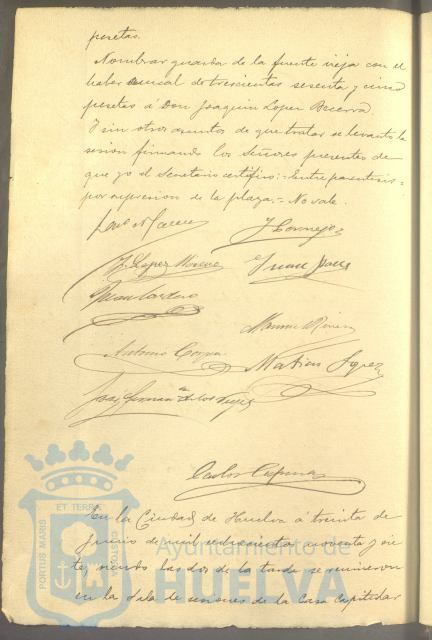 pesetas.
Nombrar guarda de la fuente vieja con el
haber anual de trescientas sesenta y cinco
pesetas á Don Joaquin Lopez Becerra.
Y sin otros asuntos de que tratar se levantó la
sesion firmando los Señores presentes de
que yo el Secretario certifico:= Entre parentesis=
por supresion de la plaza.= No vale.
J. Cornejo
J. Lopez Moreno
Juan
Juan Cordero
Antonio
Matias Lopez
José Fernan de los Reyes
Carlos
En la Ciudad de Huelva á treinta de
Junio de mil ochocientos noventa y sie
te, siendo las dos de la tarde se reunieron
en la Sala de sesiones de la Casa Capitular
PORTUS MARIS ET TERRE CUSTODIA
Ayuntamiento de
HUELVA